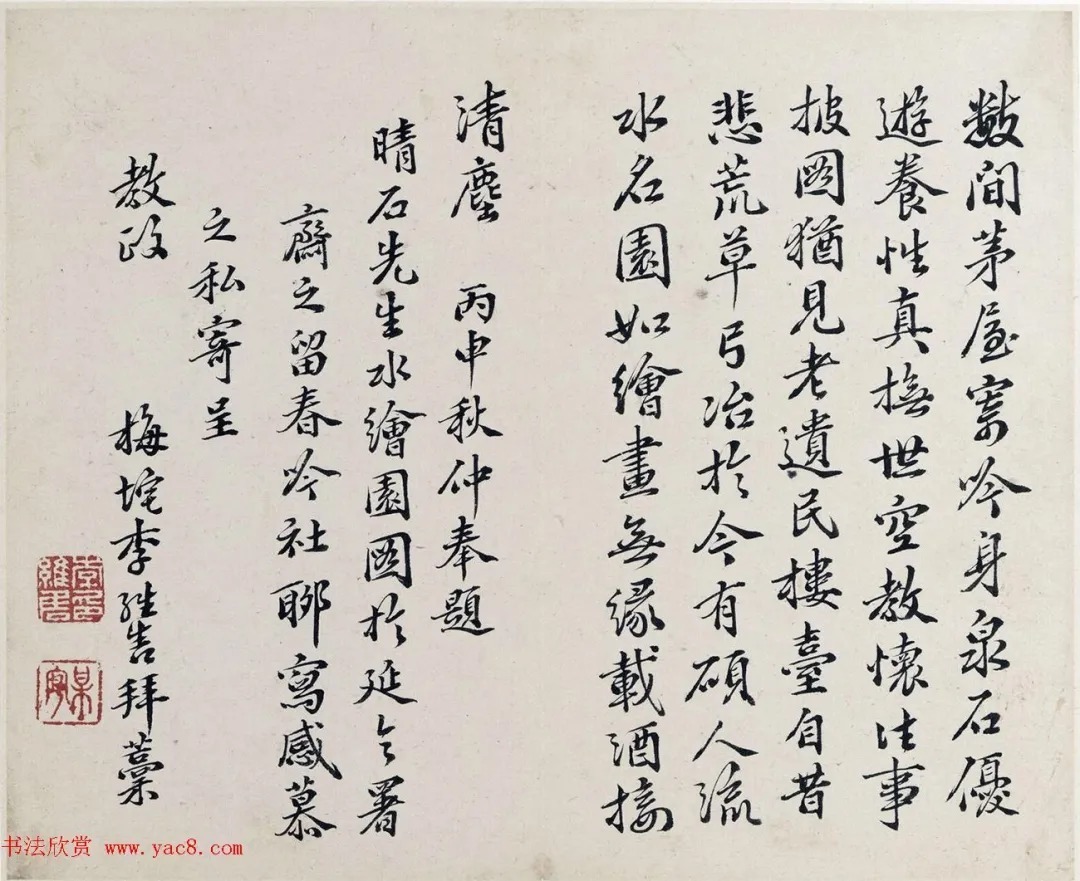 數間茅屋寄吟身泉石優
遊養性真撫世空教懷往事
披圖猶見老遺民樓臺自昔
悲荒草弓冶於今有碩人流
水名園如繪畫無緣載酒接
清塵 丙申秋仲奉題
晴石先生水繪園圖於延令署
齋之留春吟社聊寫感慕
之私寄呈
教政 梅垞李維告拜藁
书法欣赏 www.yac8.com